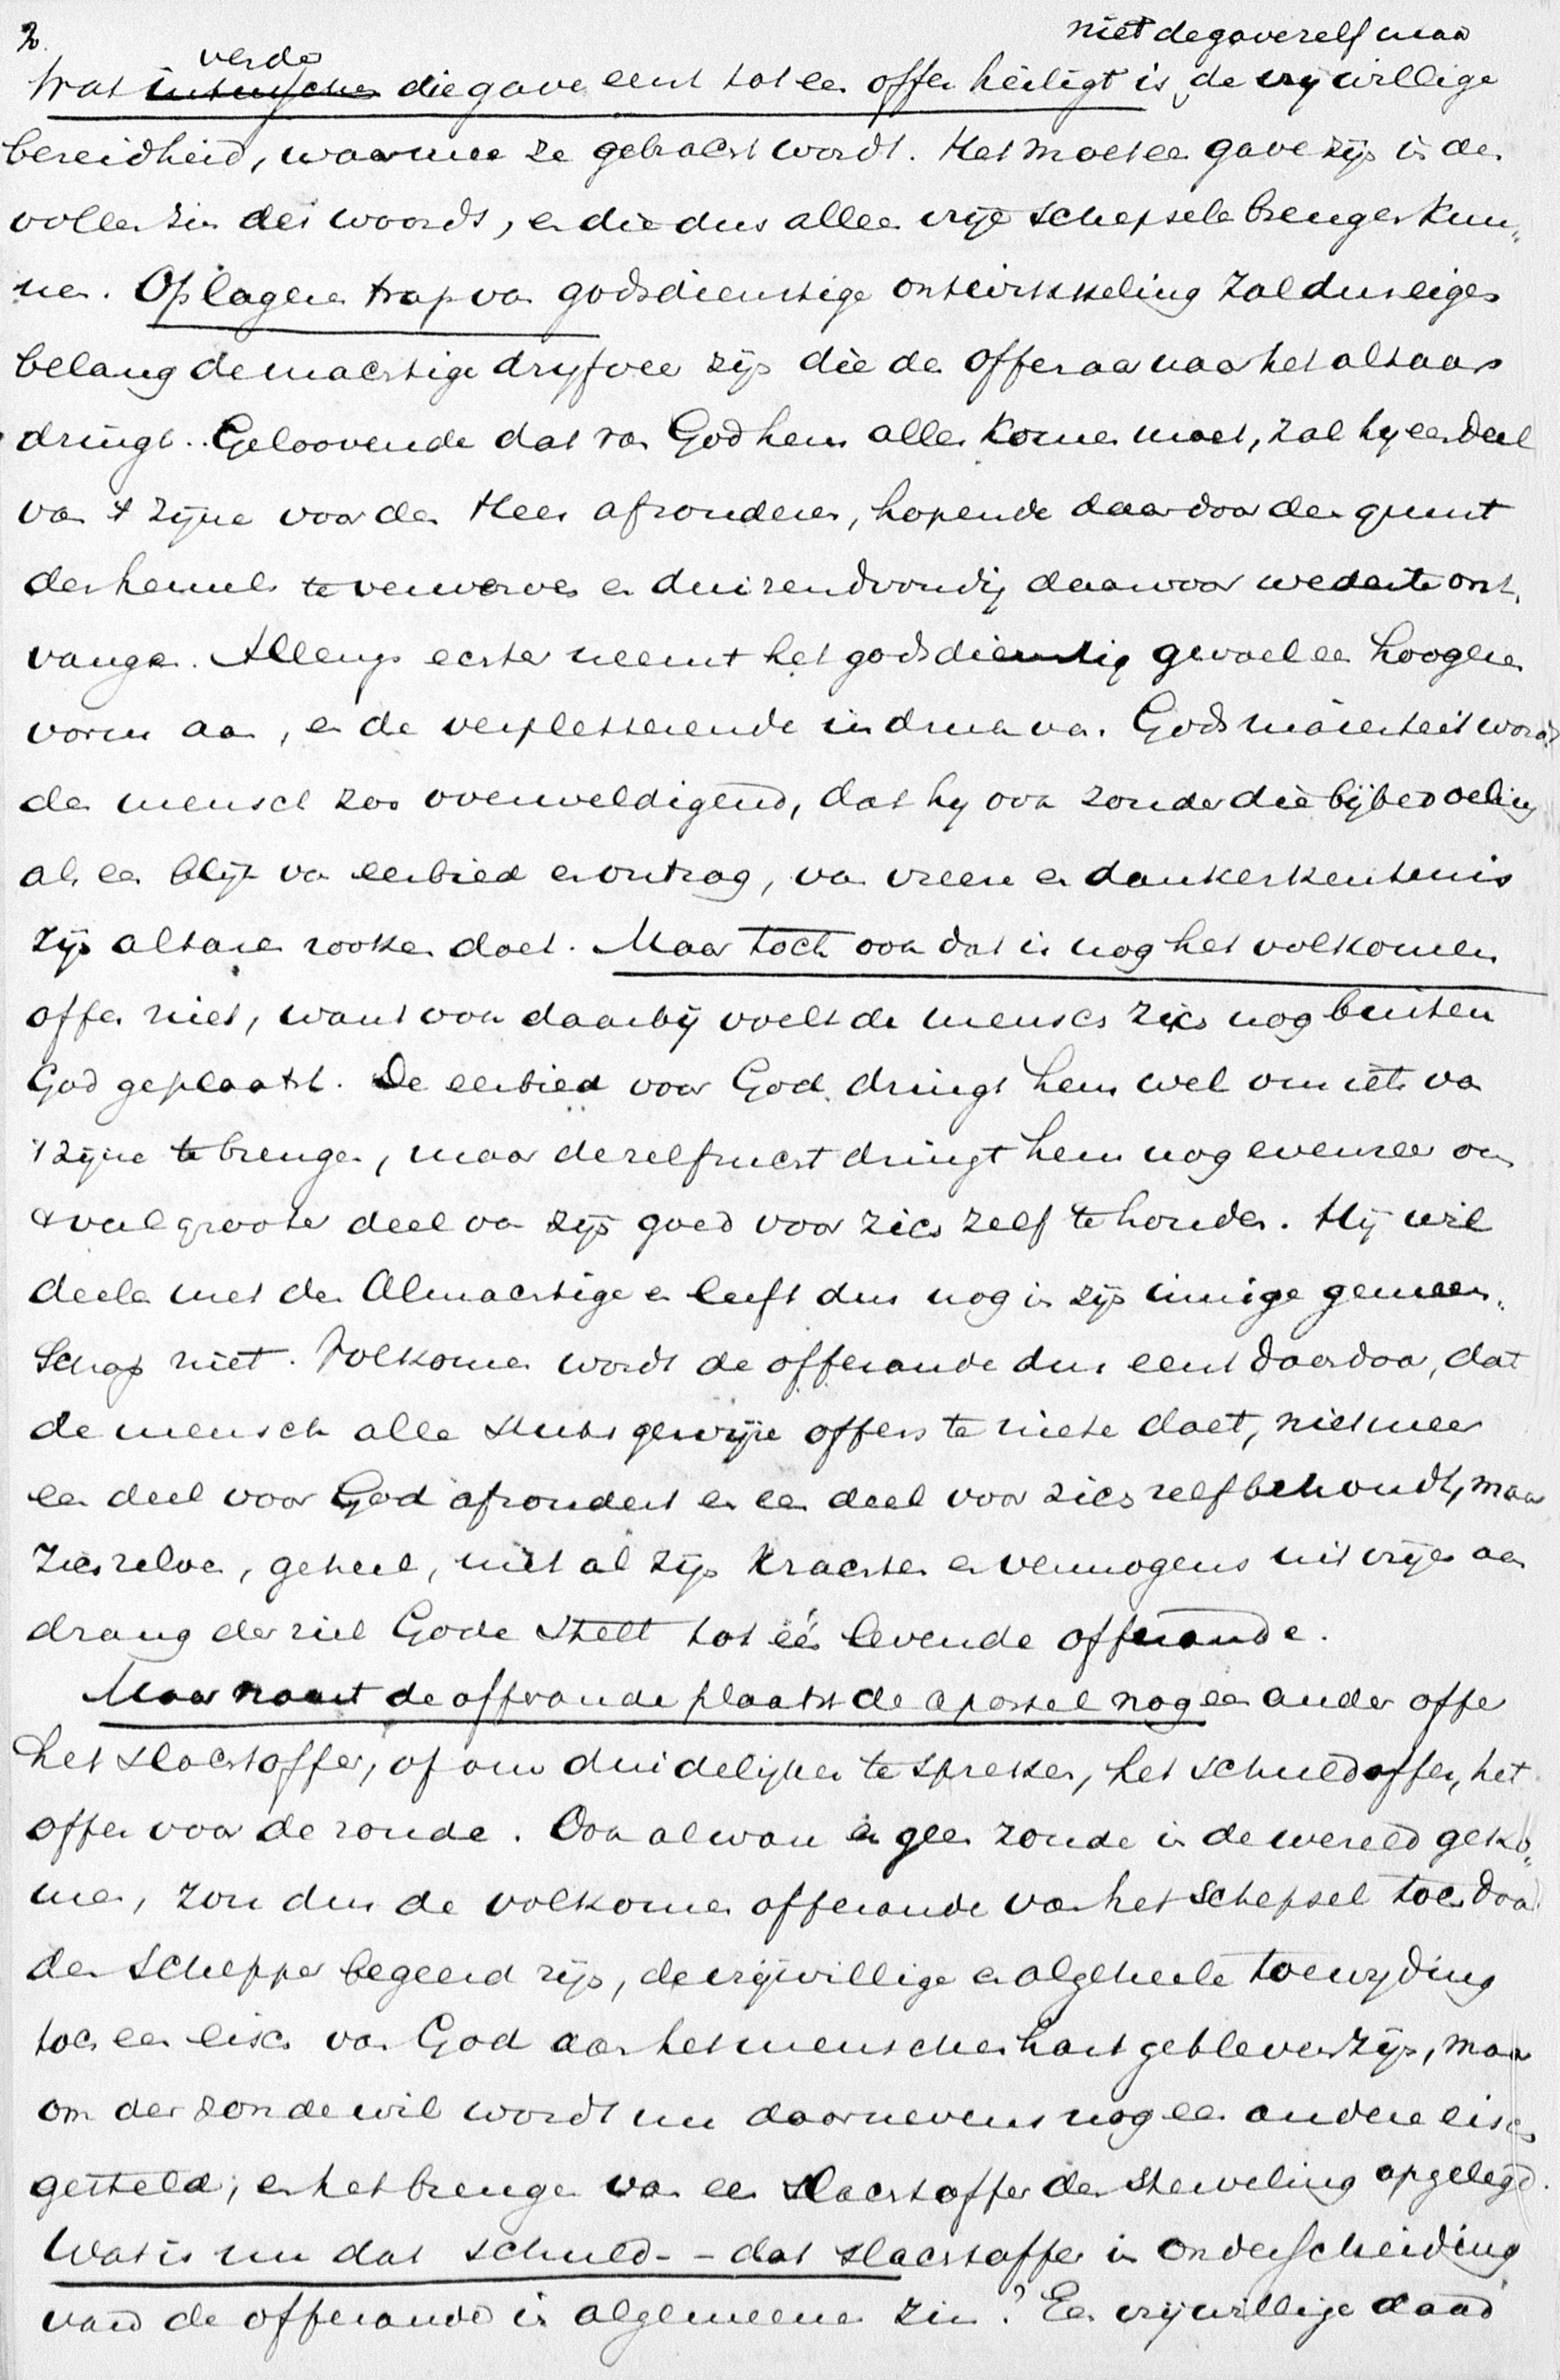 2.
niet de gave zelf maar
verder
Wat intusschen die gave eerst tot een offer heiligt is, de vrijwillige
bereidheid, waarmee ze gebracht wordt. Het moet een gave zijn in den
vollen zin des woords, en die dus alleen vrije schepselen brengen kun„
nen. Op lageren trap van godsdienstige ontwikkeling zal dus eigen
belang de machtige drijfveer zijn die den offeraar naar het altaar
dringt. Geloovende dat van God hem alles komen moet, zal hij een deel
van 't zijne voor den Heer afzonderen, hopende daardoor de gunst
des hemels te verwerven en duizendvoudig daarvoor weder te ont„
vangen. Allengs echter neemt het godsdienstig gevoel een hoogeren
vorm aan, en de verpletterende indruk van Gods majesteit wordt
den mensch zoo overweldigend, dat hij ook zonder die bijbedoeling
als een blijk van eerbied en ontzag, van vreeze en dankerkentenis
zijn altaren rooken doet. Maar toch ook dat is nog het volkomen
offer niet, want ook daarbij voelt de mensch zich nog buiten
God geplaatst. De eerbied voor God dringt hem wel om iets van
't zijne te brengen, maar de zelfzucht dringt hem nog evenzeer om
't veel grooter deel van zijn goed voor zich zelf te houden. Hij wil
deelen met den Almachtige en leeft dus nog in zijn innige gemeen„
schap niet. Volkomen wordt de offerande dus eerst daardoor, dat
de mensch alle stuksgewijze offers te niete doet, niet meer
een deel voor God afzondert en een deel voor zich zelf behoudt, maar
zich zelven, geheel, met al zijn krachten en vermogens uit vrijen aan
drang der ziel Gode stelt tot één levende offerande.
Maar naast de offerande plaatst de apostel nog een ander offer
het slachtoffer, of om duidelijker te spreken, het schuldoffer, het
offer voor de zonde. Ook al ware er geen zonde in de wereld geko„
men, zou dus de volkomen offerande van het schepsel toch door
den Schepper begeerd zijn, de vrijwillige en algeheele toewijding
toch een eisch van God aan het menschenhart gebleven zijn, maar
om der zonde wil wordt nu daarnevens nog een andere eisch
gesteld; en het brengen van een slachtoffer den sterveling opgelegd.
Wat is nu dat schuld- - dat slachtoffer in onderscheiding
van de offerande in algemeenen zin? Een vrijwillige daad